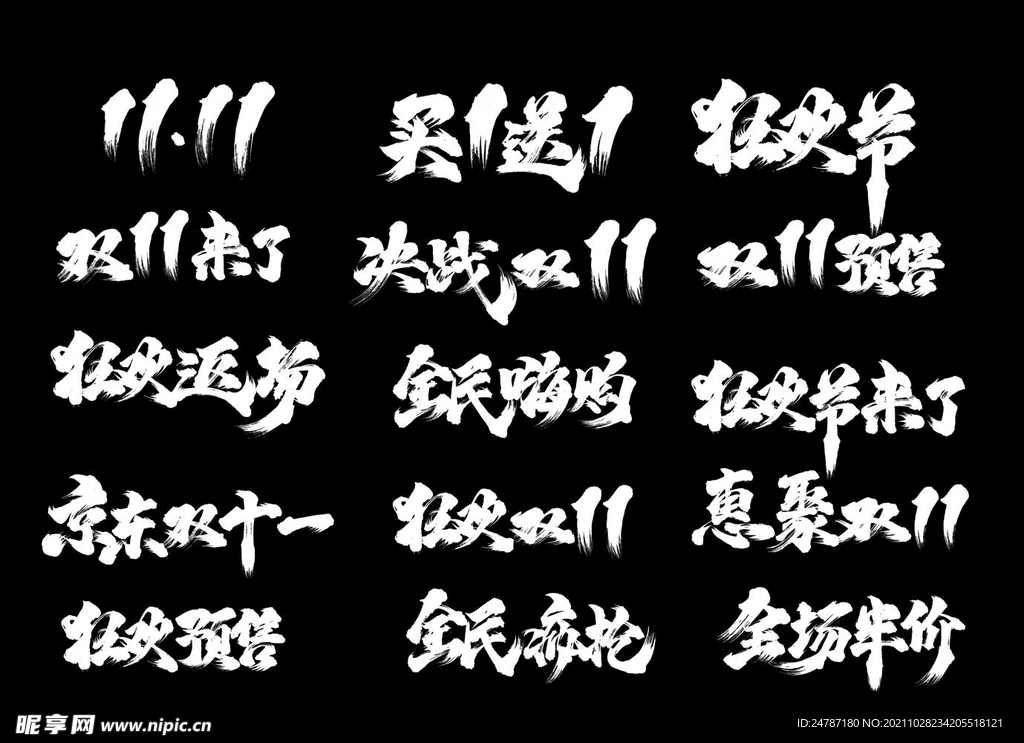 11.11
买1送1
狂欢节
双11来了
决战双11
双11预售
狂欢返场
全民嗨购
狂欢节来了
京东双十一
狂欢双11
惠聚双11
狂欢预售
全民疯抢
全场半价
昵享网 www.nipic.cn
ID:24787180 NO:20211028234205518121